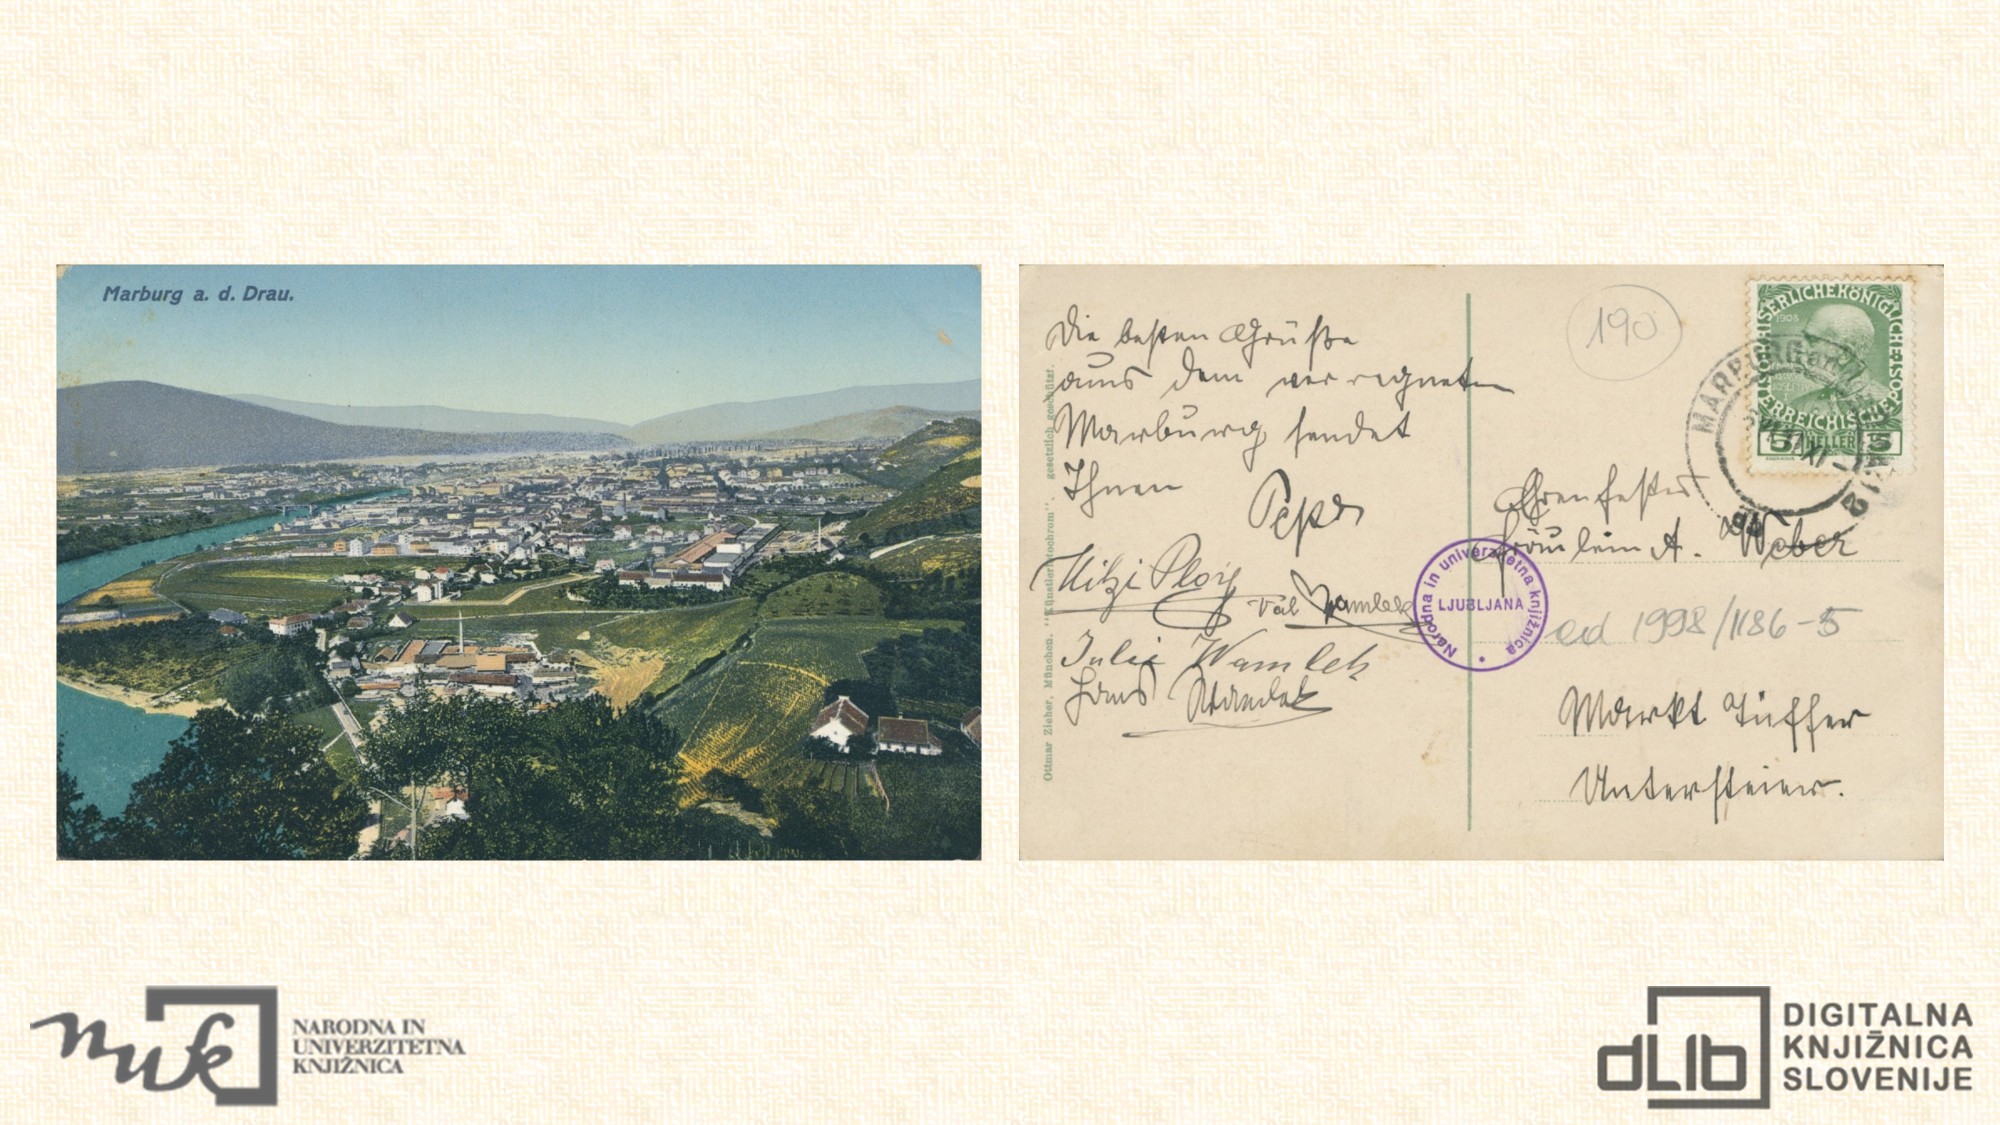 Marburg a. d. Drau.
Die besten Grüße
aus dem verregneten
Marburg sendet
Ihnen
Pepi
Mitzi
Julie Wamlek
Hans Wamlek
Ottmar Zieher, München. "Künstlerisochrom", gesetzlich geschützt.
190
KAISERLICHEKÖNIGLICHEÖSTERREICHISCHEPOST
1908
5 HELLER 5
MARBURG
Fräulein A. Weber
Narodna in univerzitetna knjižnica
LJUBLJANA
1998/1186-5
Markt Tüffer
Untersteier.
nuk
NARODNA IN
UNIVERZITETNA
KNJIŽNICA
dLib
DIGITALNA
KNJIŽNICA
SLOVENIJE